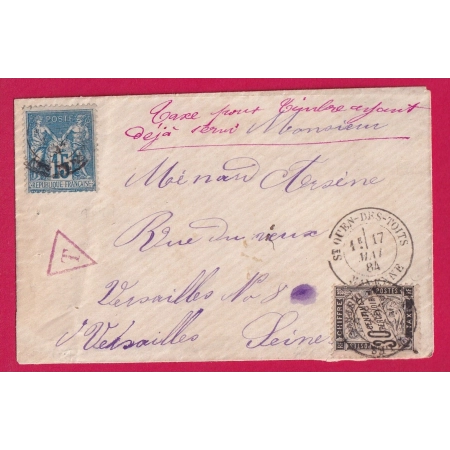 POSTE
15
REPUBLIQUE FRANÇAISE
Taxe pour Timbre ayant
déjà servi Monsieur
Ménard Arsène
Rue du vieux
Versailles No 8
Versailles Seine
T
ST OUEN-DES-TOITS
17
84
MAYENNE
CHIFFRE
TAXE
POSTES
30
CENTIMES
A PERCEVOIR